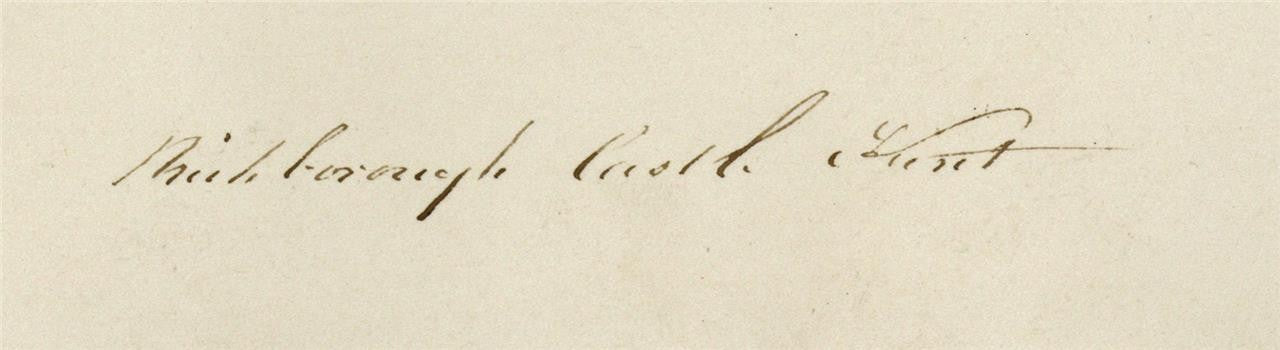 Richborough Castle Kent